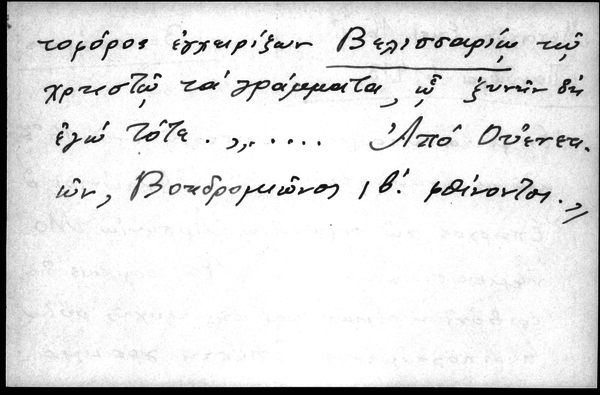 τομόρος ἐγχειρίζων Βελισσαρίῳ τῷ
χρηστῷ τά γράμματα, ᾧ ξυνῆν δή
ἐγώ τότε . ,, . . . . . Ἀπό Οὐενετι-
ῶν, Βοηδρομιῶνος ιβ΄. φθίνοντος . ,,